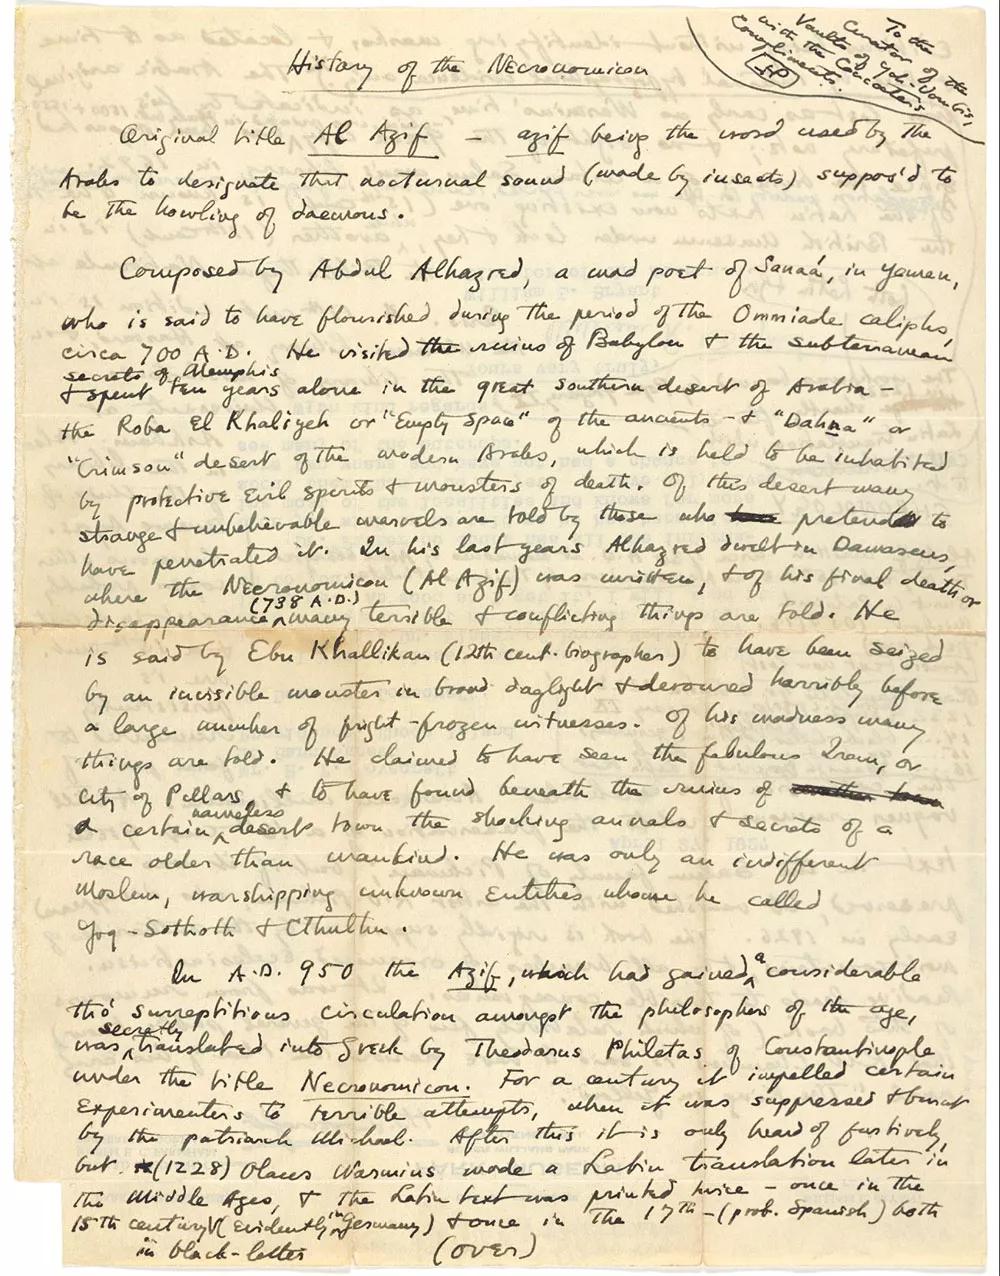 To the
Curator of the
Vaults of Yoh-Vombis,
with the Concocter's
Compliments.
HP
History of the Necronomicon
Original title Al Azif — azif being the word used by the
Arabs to designate that nocturnal sound (made by insects) suppos'd to
be the howling of daemons.
Composed by Abdul Alhazred, a mad poet of Sanaá, in Yemen,
who is said to have flourished during the period of the Ommiade caliphs,
circa 700 A.D. He visited the ruins of Babylon & the subterranean
secrets of Memphis
& spent ten years alone in the great southern desert of Arabia —
the Roba El Khaliyeh or "Empty Space" of the ancients — & "Dahna" or
"Crimson" desert of the modern Arabs, which is held to be inhabited
by protective evil spirits & monsters of death. Of this desert many
strange & unbelievable marvels are told by those who pretend to
have penetrated it. In his last years Alhazred dwelt in Damascus,
where the Necronomicon (Al Azif) was written, & of his final death or
disappearance (738 A.D.) many terrible & conflicting things are told. He
is said by Ebn Khallikan (12th cent. biographer) to have been seized
by an invisible monster in broad daylight & devoured horribly before
a large number of fright-frozen witnesses. Of his madness many
things are told. He claimed to have seen the fabulous Irem, or
City of Pillars, & to have found beneath the ruins of
a certain nameless desert town the shocking annals & secrets of a
race older than mankind. He was only an indifferent
Moslem, worshipping unknown entities whom he called
Yog-Sothoth & Cthulhu.
In A.D. 950 the Azif, which had gained a considerable
tho' surreptitious circulation amongst the philosophers of the age,
was secretly translated into Greek by Theodorus Philetas of Constantinople
under the title Necronomicon. For a century it impelled certain
experimenters to terrible attempts, when it was suppressed & burnt
by the patriarch Michael. After this it is only heard of furtively,
but (1228) Olaus Wormius made a Latin translation later in
the Middle Ages, & the Latin text was printed twice — once in the
15th century (evidently in Germany) & once in the 17th — (prob. Spanish) both
in black-letter
(over)